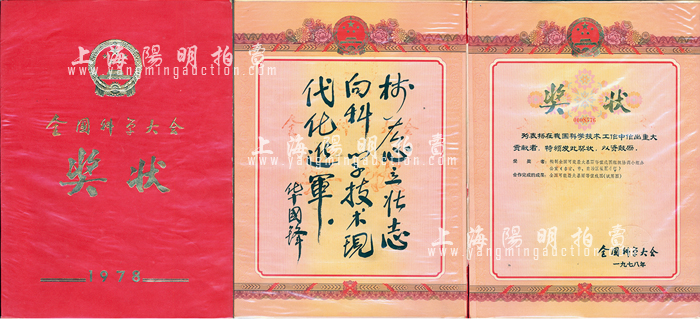 全国科学大会
奖状
1978
树雄心立壮志
向科学技术现
代化进軍。
华國锋
奖状
为表扬在我国科学技术工作中作出重大
贡献者，特颁发此奖状，以资鼓励。
受奖者：
合作完成的成果：
全国科学大会
一九七八年
上海陽明拍賣
www.yangmingauction.com
上海陽明拍賣
www.yangmingauction.com
上海陽明拍賣
www.yangmingauction.com